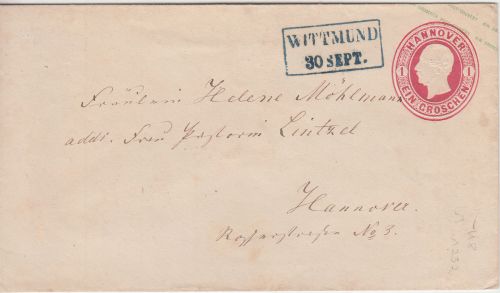 WITTMUND
30 SEPT.
HANNOVER
1 1
EIN GROSCHEN
Fräulein Helene Möhlmann
addr. Frau Pastorin Lintzel
Hannover.
No 3.